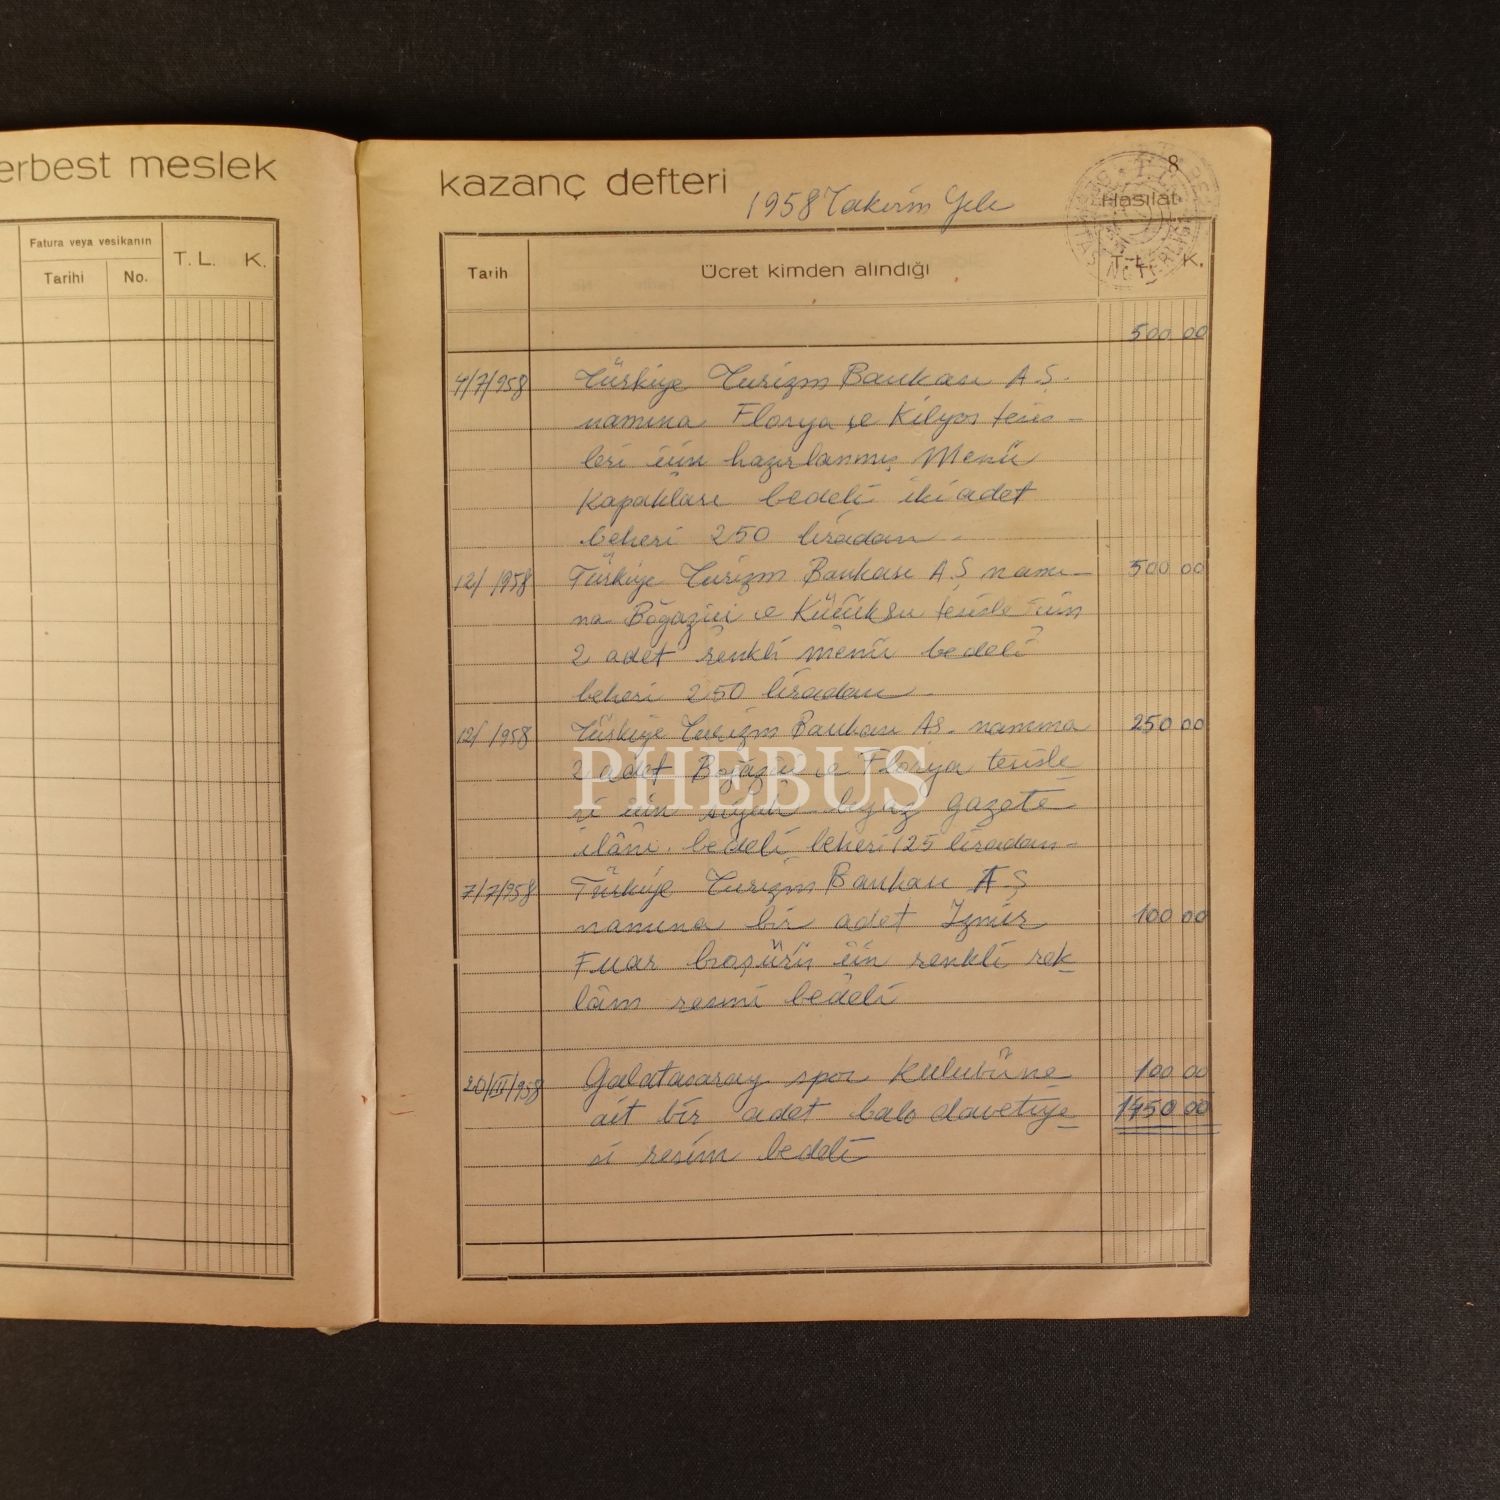 erbest meslek
Fatura veya vesikanın
T. L. K.
Tarihi No.
kazanç defteri
1958 Takvim Yılı
8
Hasılat
Tarih
Ücret kimden alındığı
T. L. K.
500 00
4/7/958 Türkiye Turizm Bankası A.Ş.
namına Florya ve Kilyos tesis-
leri için hazırlanmış Menü
Kapakları bedeli iki adet
beheri 250 liradan -
12/ /958 Türkiye Turizm Bankası A.Ş namı- 500 00
na Boğaziçi ve Küçüksu tesisle için
2 adet renkli menü bedeli
beheri 250 liradan -
12/ /958 Türkiye Turizm Bankası AŞ. namına 250 00
2 adet Boğaziçi ve Florya tesisle
ri için siyah-beyaz gazete
ilânı bedeli beheri 125 liradan-
7/7/958 Türkiye Turizm Bankası A Ş
namına bir adet İzmir 100 00
Fuar broşürü için renkli rek
lâm resmi bedeli
20/III/958 Galatasaray spor Kulubüne 100 00
ait bir adet balo davetiye 1450 00
si resim bedeli
PHEBUS